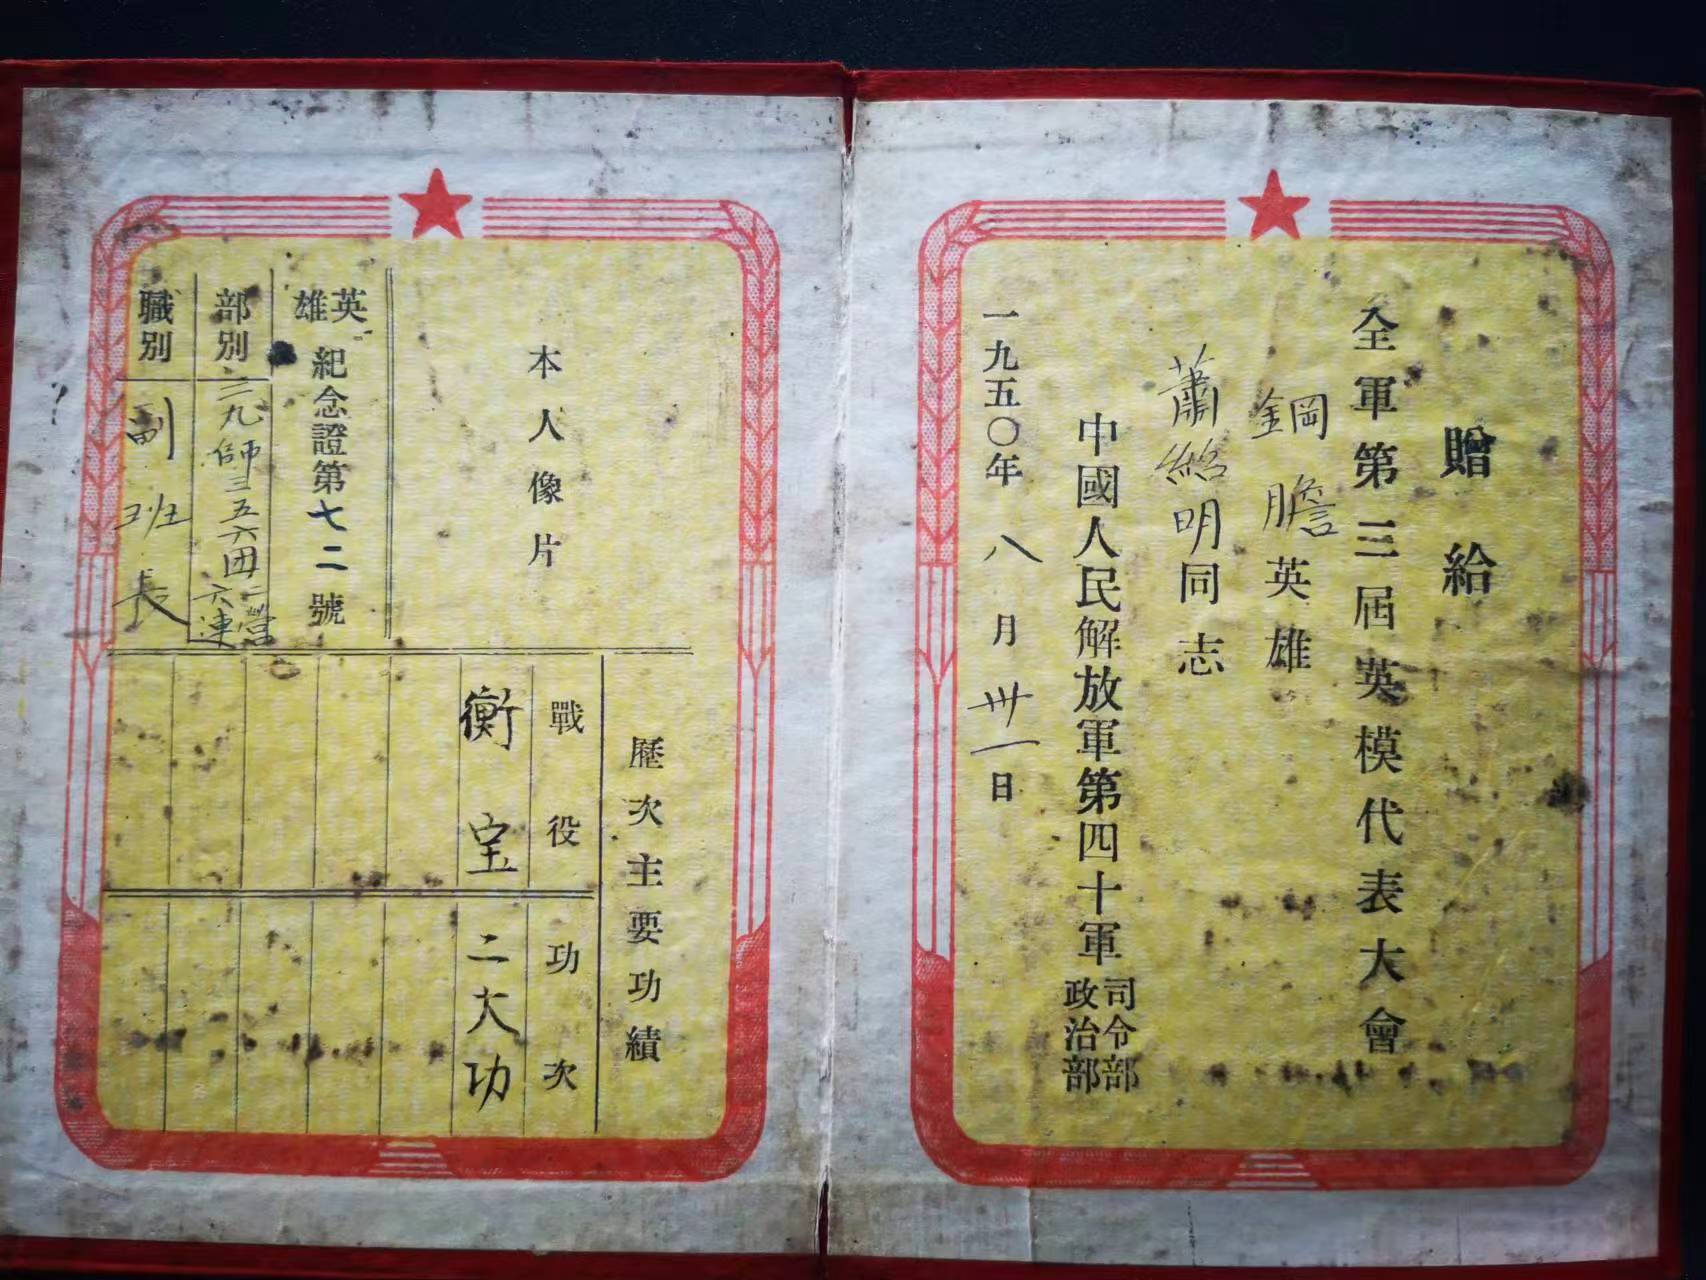 贈給
全軍第三届英模代表大會
鋼膽英雄
蕭紹明同志
中國人民解放軍第四十軍
司令部
政治部
一九五〇年八月卅一日
本人像片
英雄
紀念證第七二號
部別
三九師三五六团二營
六連
職別
副班長
歷次主要功績
戰役
功次
衡宝
二大功